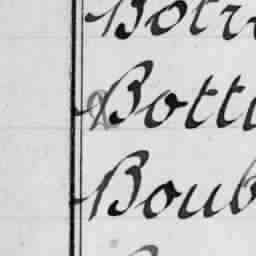 Botr
Botti
Boub